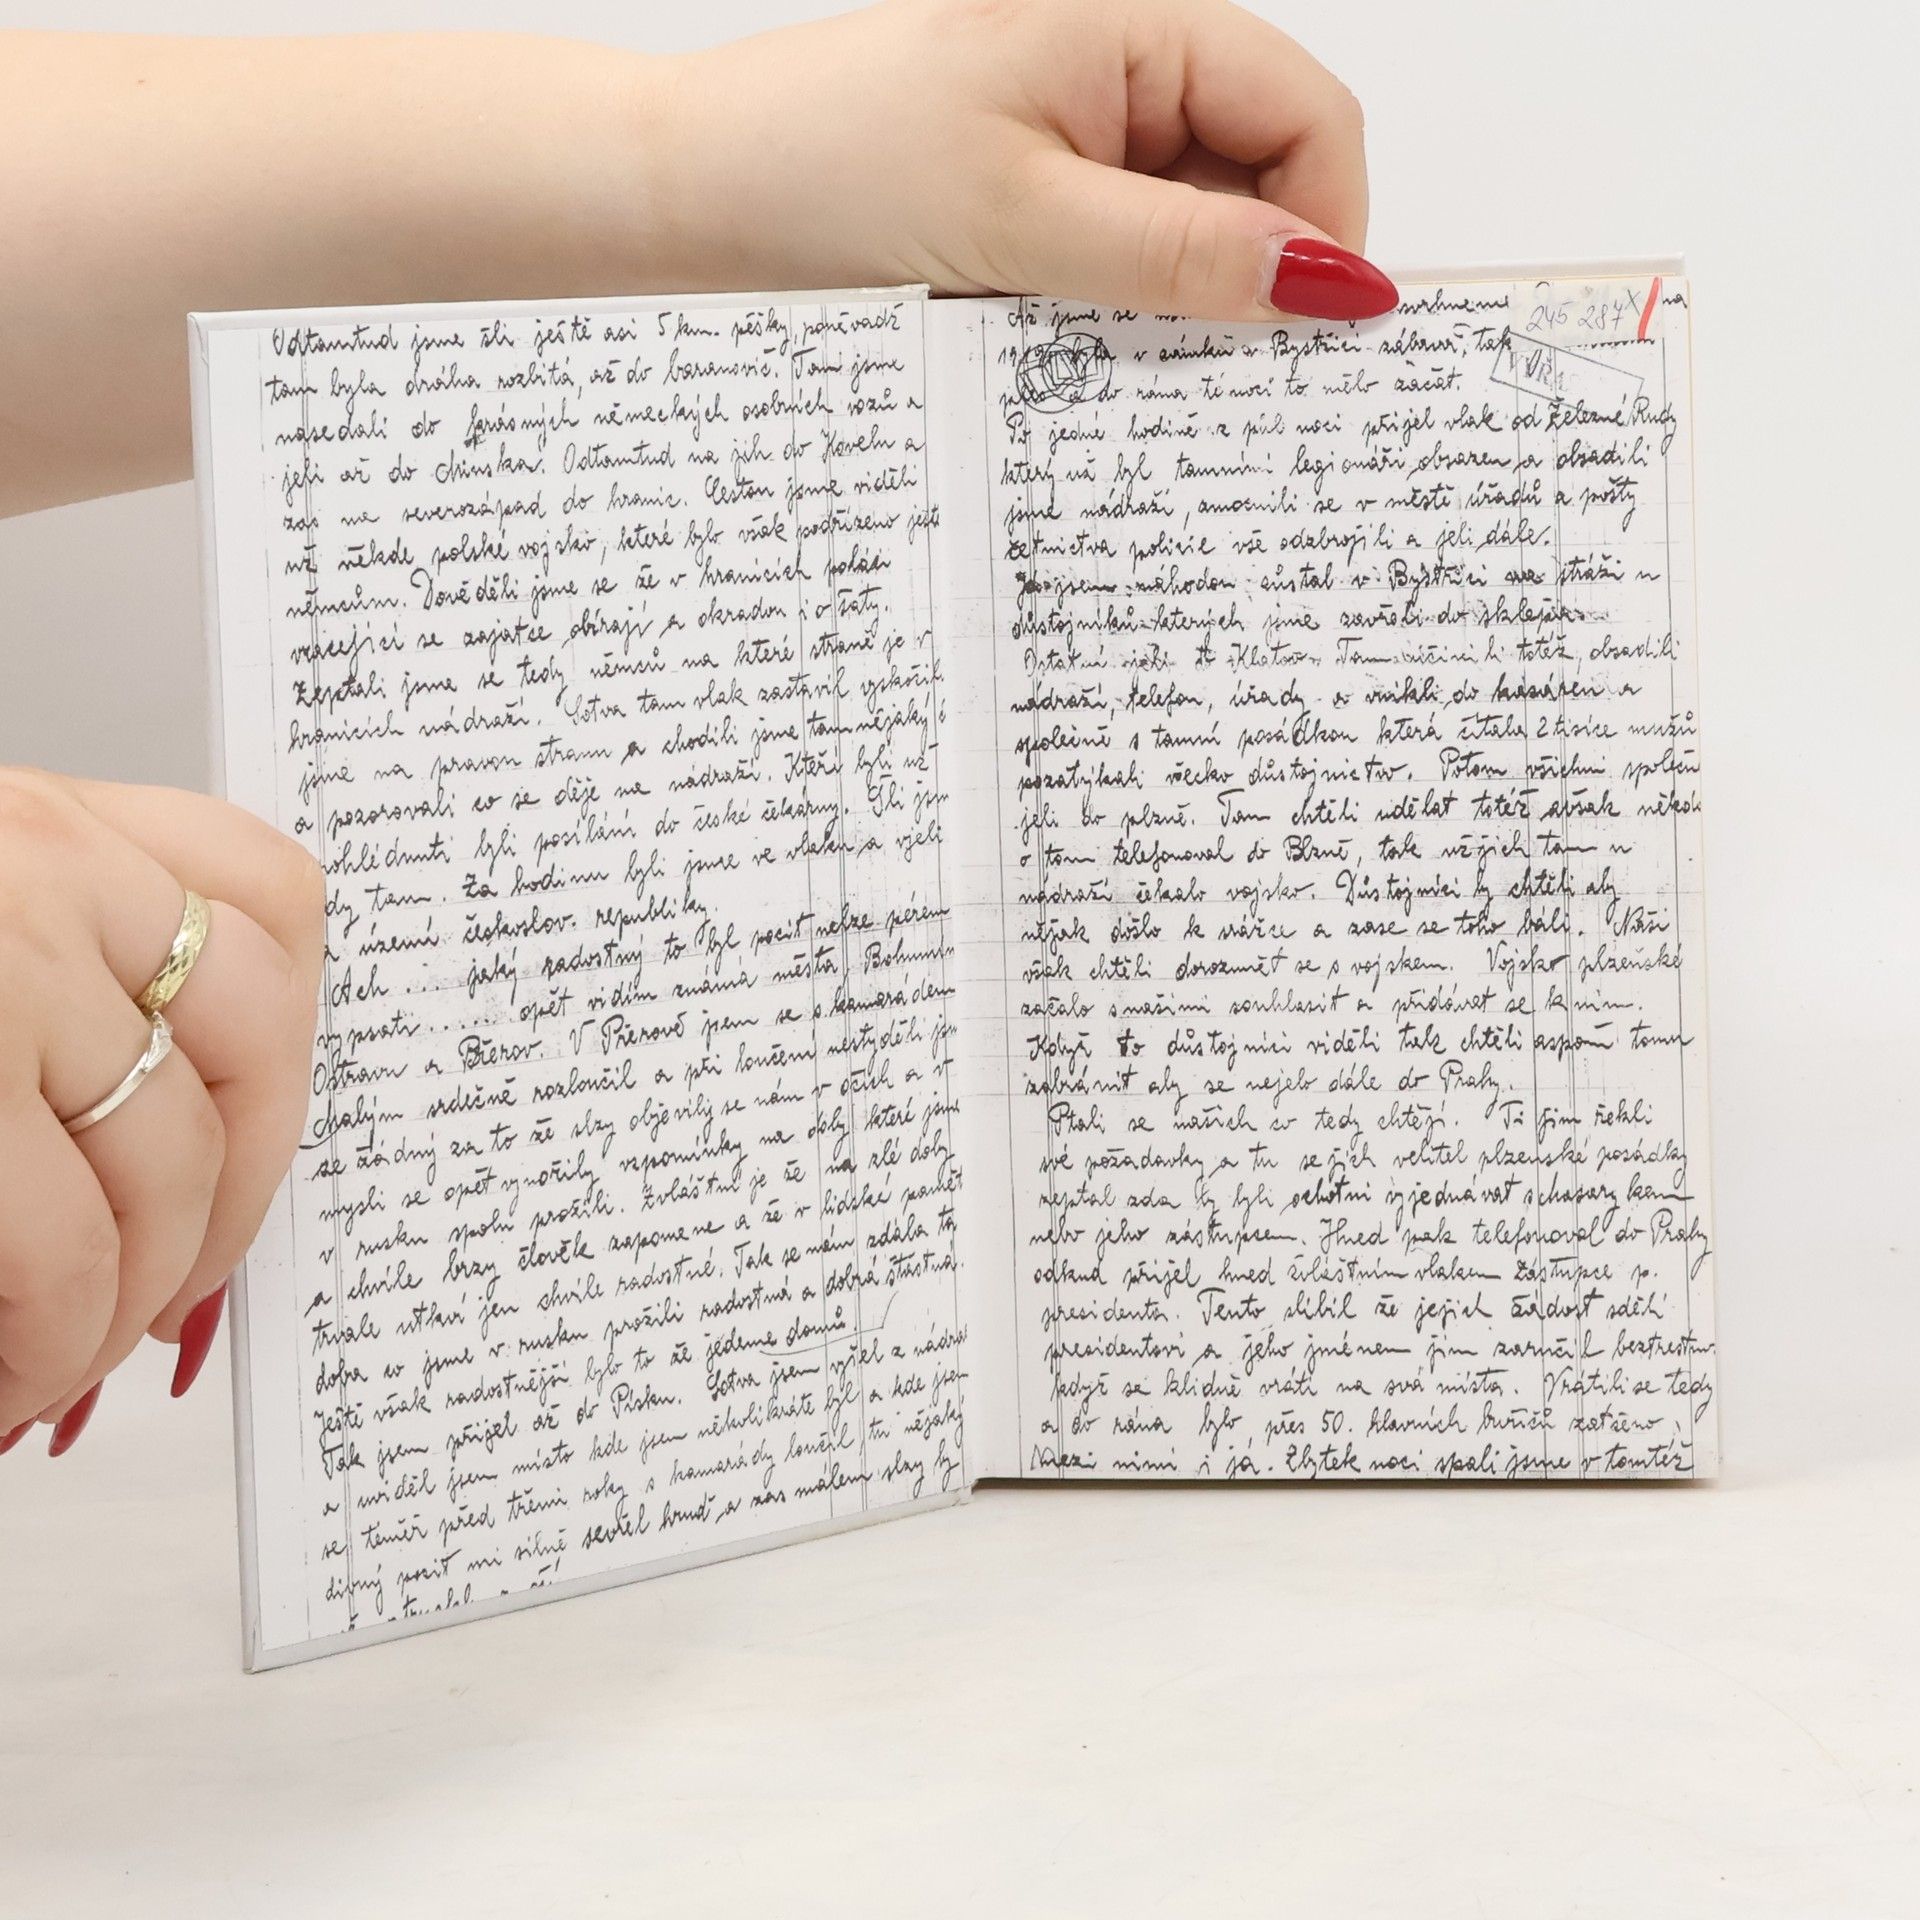 Odtamtud jsme šli ještě asi 5 km. pěšky, poněvadž
tam byla dráha rozbitá, až do baranovič. Tam jsme
nasedali do prásných německých osobních vozů a
jeli až do Minska. Odtamtud na jih do Kovelu a
zas na severozápad do hranic. Cestou jsme viděli
už někde polské vojsko, které bylo však podřízeno ještě
němcům. Dověděli jsme se že v hranicích poláci
vracející se zajatce obírají a okradou i o šaty.
Zeptali jsme se tedy němců na které straně je v
hranicích nádraží. Sotva tam vlak zastavil vyskočili
jsme na pravou stranu a chodili jsme tam nějaký č
a pozorovali co se děje na nádraží. Kteří byli už
ohlédnuti byli posíláni do české čekárny. Šli jsm
dy tam. Za hodinu byli jsme ve vlaku a vjeli
území českoslov. republiky.
Ach ... jaký radostný to byl pocit nelze pérem
vypsati ...... opět vidím známá města, Bohumín
Ostravu a Přerov. V Přerově jsem se s kamarádem
Malým srdečně rozloučil a při loučení nestyděli jsm
se žádný za to že slzy objevily se nám v očích a v
mysli se opět vynořily vzpomínky na doby které jsme
v rusku spolu prožili. Zvláštní je že na zlé doby
a chvíle brzy člověk zapomene a že v lidské paměti
trvale utkví jen chvíle radostné. Tak se nám zdála ta
doba co jsme v rusku prožili radostná a dobrá šťastná.
Ještě však radostnější bylo to že jedeme domů.
Tak jsem přijel až do Písku. Sotva jsem vyšel z nádra
a uviděl jsem místo kde jsem několikráte byl a kde jsem
se téměř před třemi roky s kamarády loučil, tu nějaký
divný pocit mi silně sevřel hruď a zas málem slzy by
Až jsme se
245 287 x
1919 byla v zámku v Bystřici zábava, tak
a do rána té noci to mělo začat.
Po jedné hodině z půl noci přijel vlak od Železné Rudy
který už byl tamními legionáři obsazen a obsadili
jsme nádraží, zmocnili se v městě úřadů a pošty
četnictva policie vše odzbrojili a jeli dále.
Já jsem náhodou zůstal v Bystřici na stráži u
důstojníků kterých jsme zavřeli do sklepa.
Ostatní jeli do Klatov. Tam učinili totéž, obsadili
nádraží, telefon, úřady a vnikli do kasáren a
společně s tamní posádkou která čítala 2 tisíce mužů
pozatýkali všecko důstojnictvo. Potom všichni společn
jeli do plzně. Tam chtěli udělat totéž avšak někdo
o tom telefonoval do Plzně, tak už jich tam u
nádraží čekalo vojsko. Důstojníci by chtěli aby
nějak došlo k srážce a zase se toho báli. Naši
však chtěli dorozumět se s vojskem. Vojsko plzeňské
začalo s našimi souhlasit a přidávat se k nim.
Když to důstojníci viděli tak chtěli aspoň tomu
zabránit aby se nejelo dále do Prahy.
Ptali se našich co tedy chtějí. Ti jim řekli
své požadavky a tu se jich velitel plzenské posádky
zeptal zda by byli ochotni vyjednávat s Masarykem
nebo jeho zástupcem. Hned pak telefonoval do Prahy
odkud přijel hned zvláštním vlakem zástupce p.
presidenta. Tento slíbil že jejich žádost sdělí
presidentovi a jeho jménem jim zaručil beztrestn.
když se klidně vrátí na svá místa. Vrátili se tedy
a do rána bylo přes 50. hlavních buřičů zatčeno,
Mezi nimi i já. Zbytek noci spali jsme v tomtéž